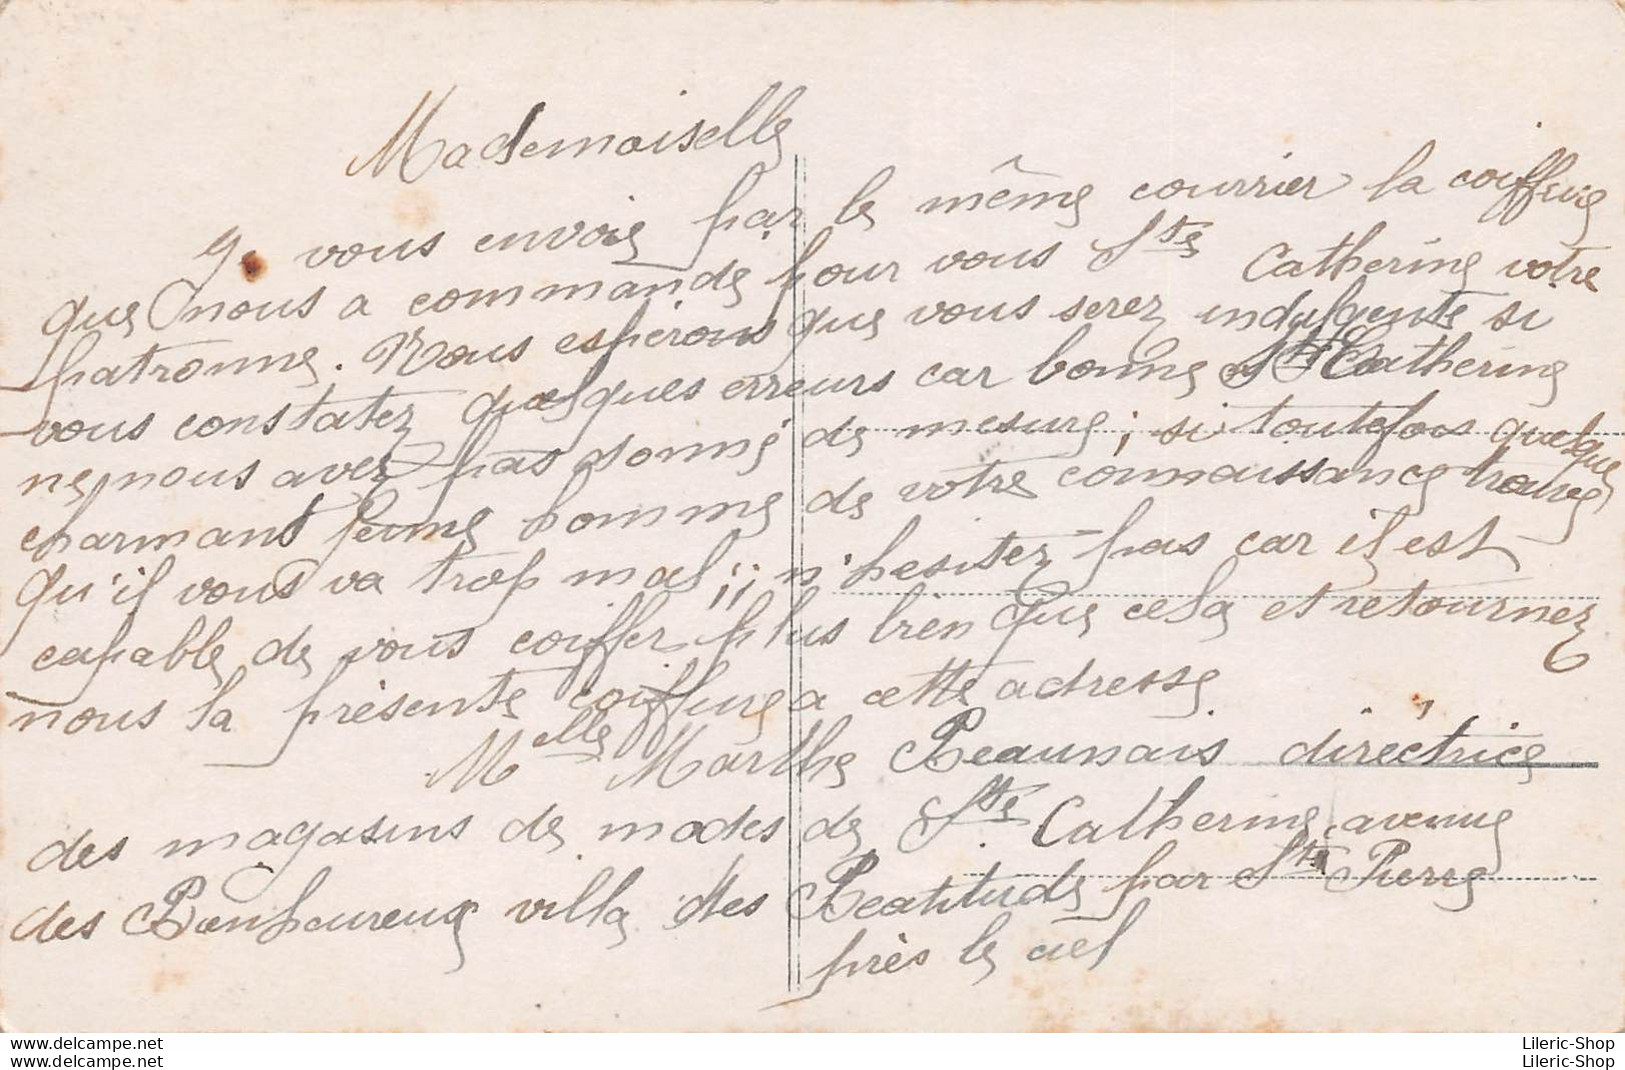 Mademoiselle
Je vous envoie par le même courrier la coiffure
que nous a commande pour vous Ste Catherine votre
patronne. Nous espérons que vous serez indulgente si
vous constatez quelques erreurs car bonne Ste Catherine
ne nous avez pas donné de mesure ; si toutefois quelque
charmant jeune homme de votre connaissance trouve
qu'il vous va trop mal ¡¡ n'hesitez pas car il est
capable de vous coiffer plus bien que cela et retournez
nous la présente coiffure a cette adresse
Melle Marthe Beaunais directrice
des magasins de modes de Ste Catherine avenue
des Bienheureux villa des Beatitude par St Pierre
près le ciel
Lileric-Shop
Lileric-Shop
www.delcampe.net
www.delcampe.net